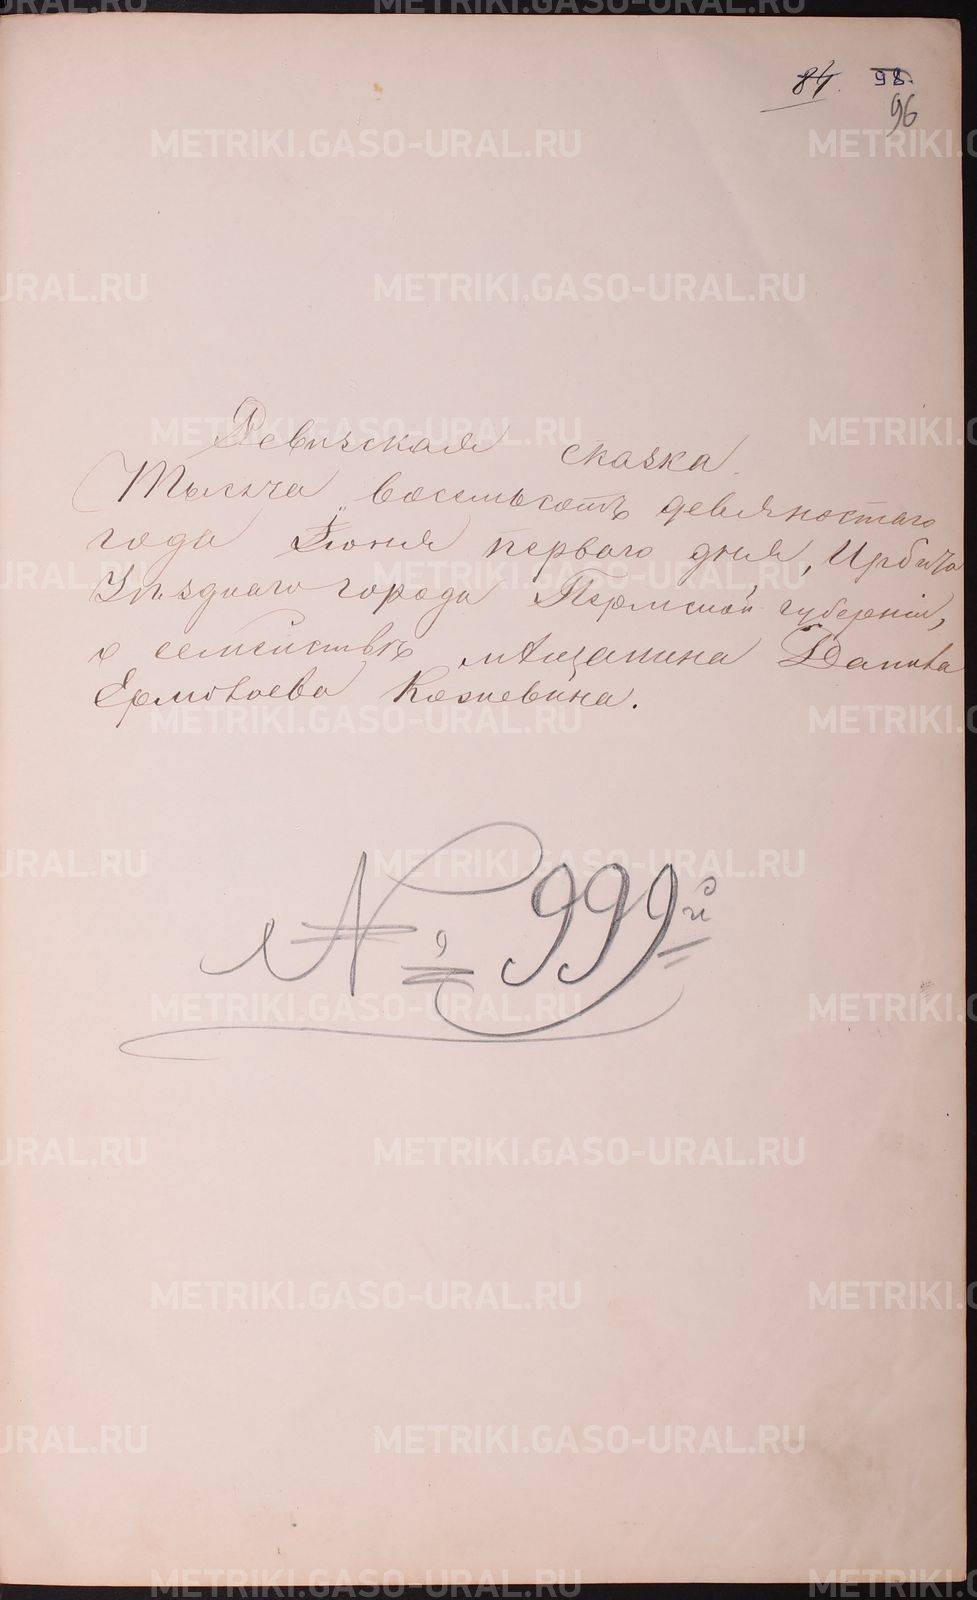 84. 98.
96
Ревизская сказка
Тысяча восемьсотъ девяностаго
года Іюня перваго дня, Ирбита
Уѣзднаго города Пермской губерніи,
о семействѣ мѣщанина Данила
Ермолаева Кожевина.
№ 999й